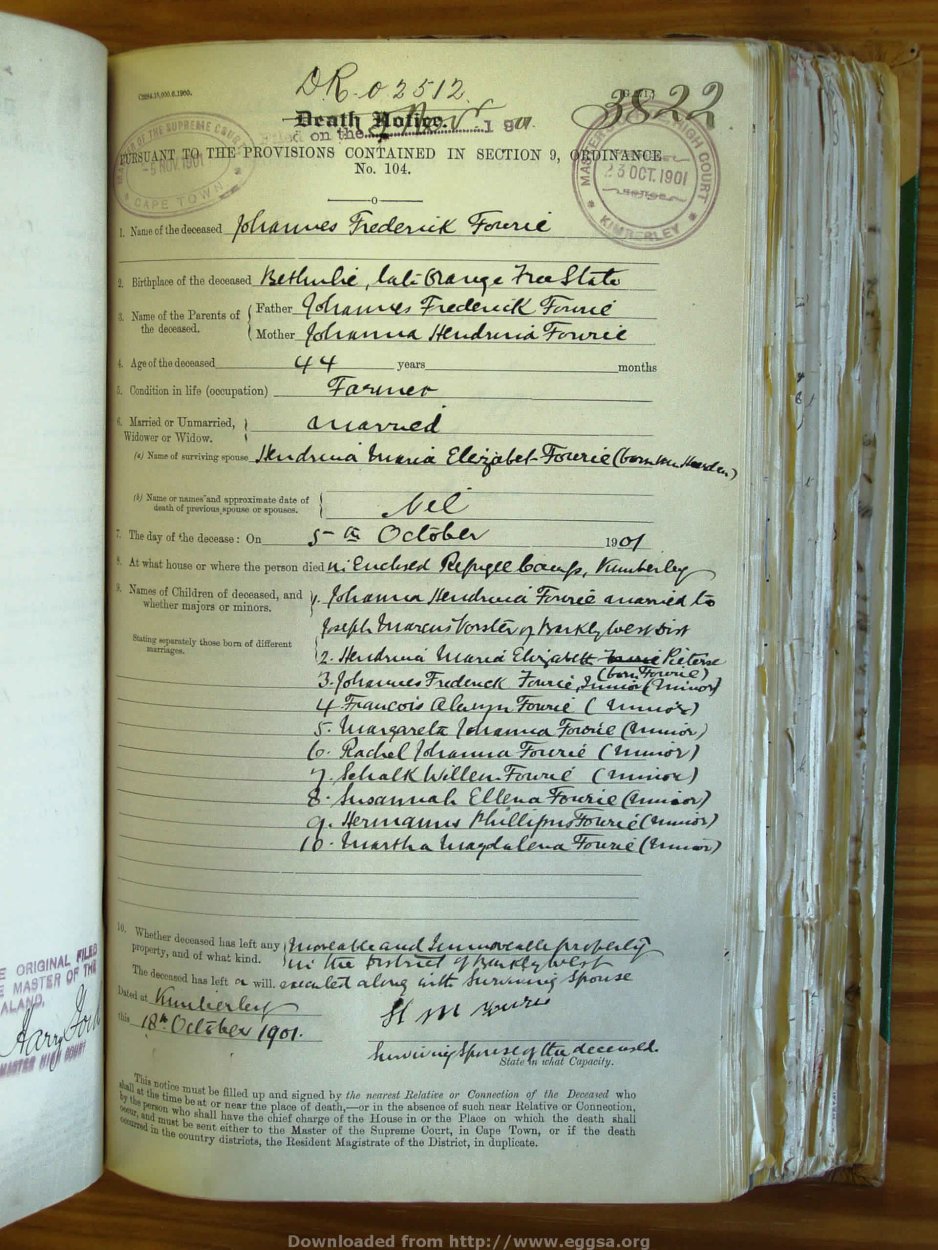 DR. 02512
3822
Death Notice.
Filed on the 190
PURSUANT TO THE PROVISIONS CONTAINED IN SECTION 9, ORDINANCE
No. 104.
MASTER OF THE SUPREME COURT
-5 NOV. 1901
CAPE TOWN
MASTER HIGH COURT
23 OCT. 1901
KIMBERLEY
1. Name of the deceased Johannes Frederick Fourie
2. Birthplace of the deceased Bethulie, late Orange Free State
3. Name of the Parents of the deceased.
Father Johannes Frederick Fourie
Mother Johanna Hendrina Fourie
4. Age of the deceased 44 years months
5. Condition in life (occupation) Farmer
6. Married or Unmarried, Widower or Widow. married
(a) Name of surviving spouse Hendrina Maria Elizabet Fourie (born van Heerden)
(b) Name or names and approximate date of death of previous spouse or spouses. Nil
7. The day of the decease: On 5th October 1901
8. At what house or where the person died in Enclosed Refugee Camp, Kimberley
9. Names of Children of deceased, and whether majors or minors.
Stating separately those born of different marriages.
1. Johanna Hendrina Fourie married to
Joseph Marcus Vorster of Barkly West Dist
2. Hendrina Maria Elizabeth Fourie Pieterse
(born Fourie)
3. Johannes Frederick Fourie, Junior (minor)
4. Francois Alwyn Fourie (minor)
5. Margareta Johanna Fourie (minor)
6. Rachel Johanna Fourie (minor)
7. Schalk Willem Fourie (minor)
8. Susannah Ellena Fourie (minor)
9. Hermanus Phillipus Fourie (minor)
10. Martha Magdalena Fourie (minor)
10. Whether deceased has left any property, and of what kind. Moveable and Immoveable property
in the District of Barkly West
The deceased has left a will. executed along with surviving spouse
Dated at Kimberley
this 18th October 1901.
H M Fourie
Surviving Spouse of the deceased.
State in what Capacity.
This notice must be filled up and signed by the nearest Relative or Connection of the Deceased who
shall at the time be at or near the place of death,—or in the absence of such near Relative or Connection,
by the person who shall have the chief charge of the House in or the Place on which the death shall
occur, and must be sent either to the Master of the Supreme Court, in Cape Town, or if the death
occurred in the country districts, the Resident Magistrate of the District, in duplicate.
E ORIGINAL FILED
E MASTER OF THE
ALAND.
Harry
MASTER HIGH COURT
Downloaded from http://www.eggsa.org